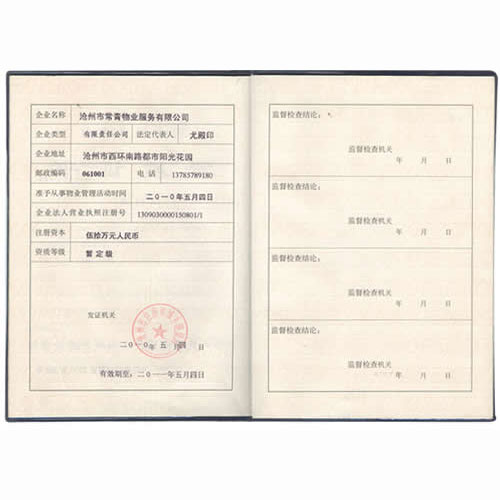 企业名称 沧州市常青物业服务有限公司
企业类型 有限责任公司 法定代表人 尤殿印
企业地址 沧州市西环南路都市阳光花园
邮政编码 061001 电话 13785789180
准予从事物业管理活动时间 二〇一〇年五月四日
企业法人营业执照注册号 1309030000150801/1
注册资本 伍拾万元人民币
资质等级 暂定级
发证机关
二〇一〇年 五 月 四 日
有效期至:二〇一一年五月四日
监督检查结论:
监督检查机关
年 月 日
监督检查结论:
监督检查机关
年 月 日
监督检查结论:
监督检查机关
年 月 日
监督检查结论:
监督检查机关
年 月 日